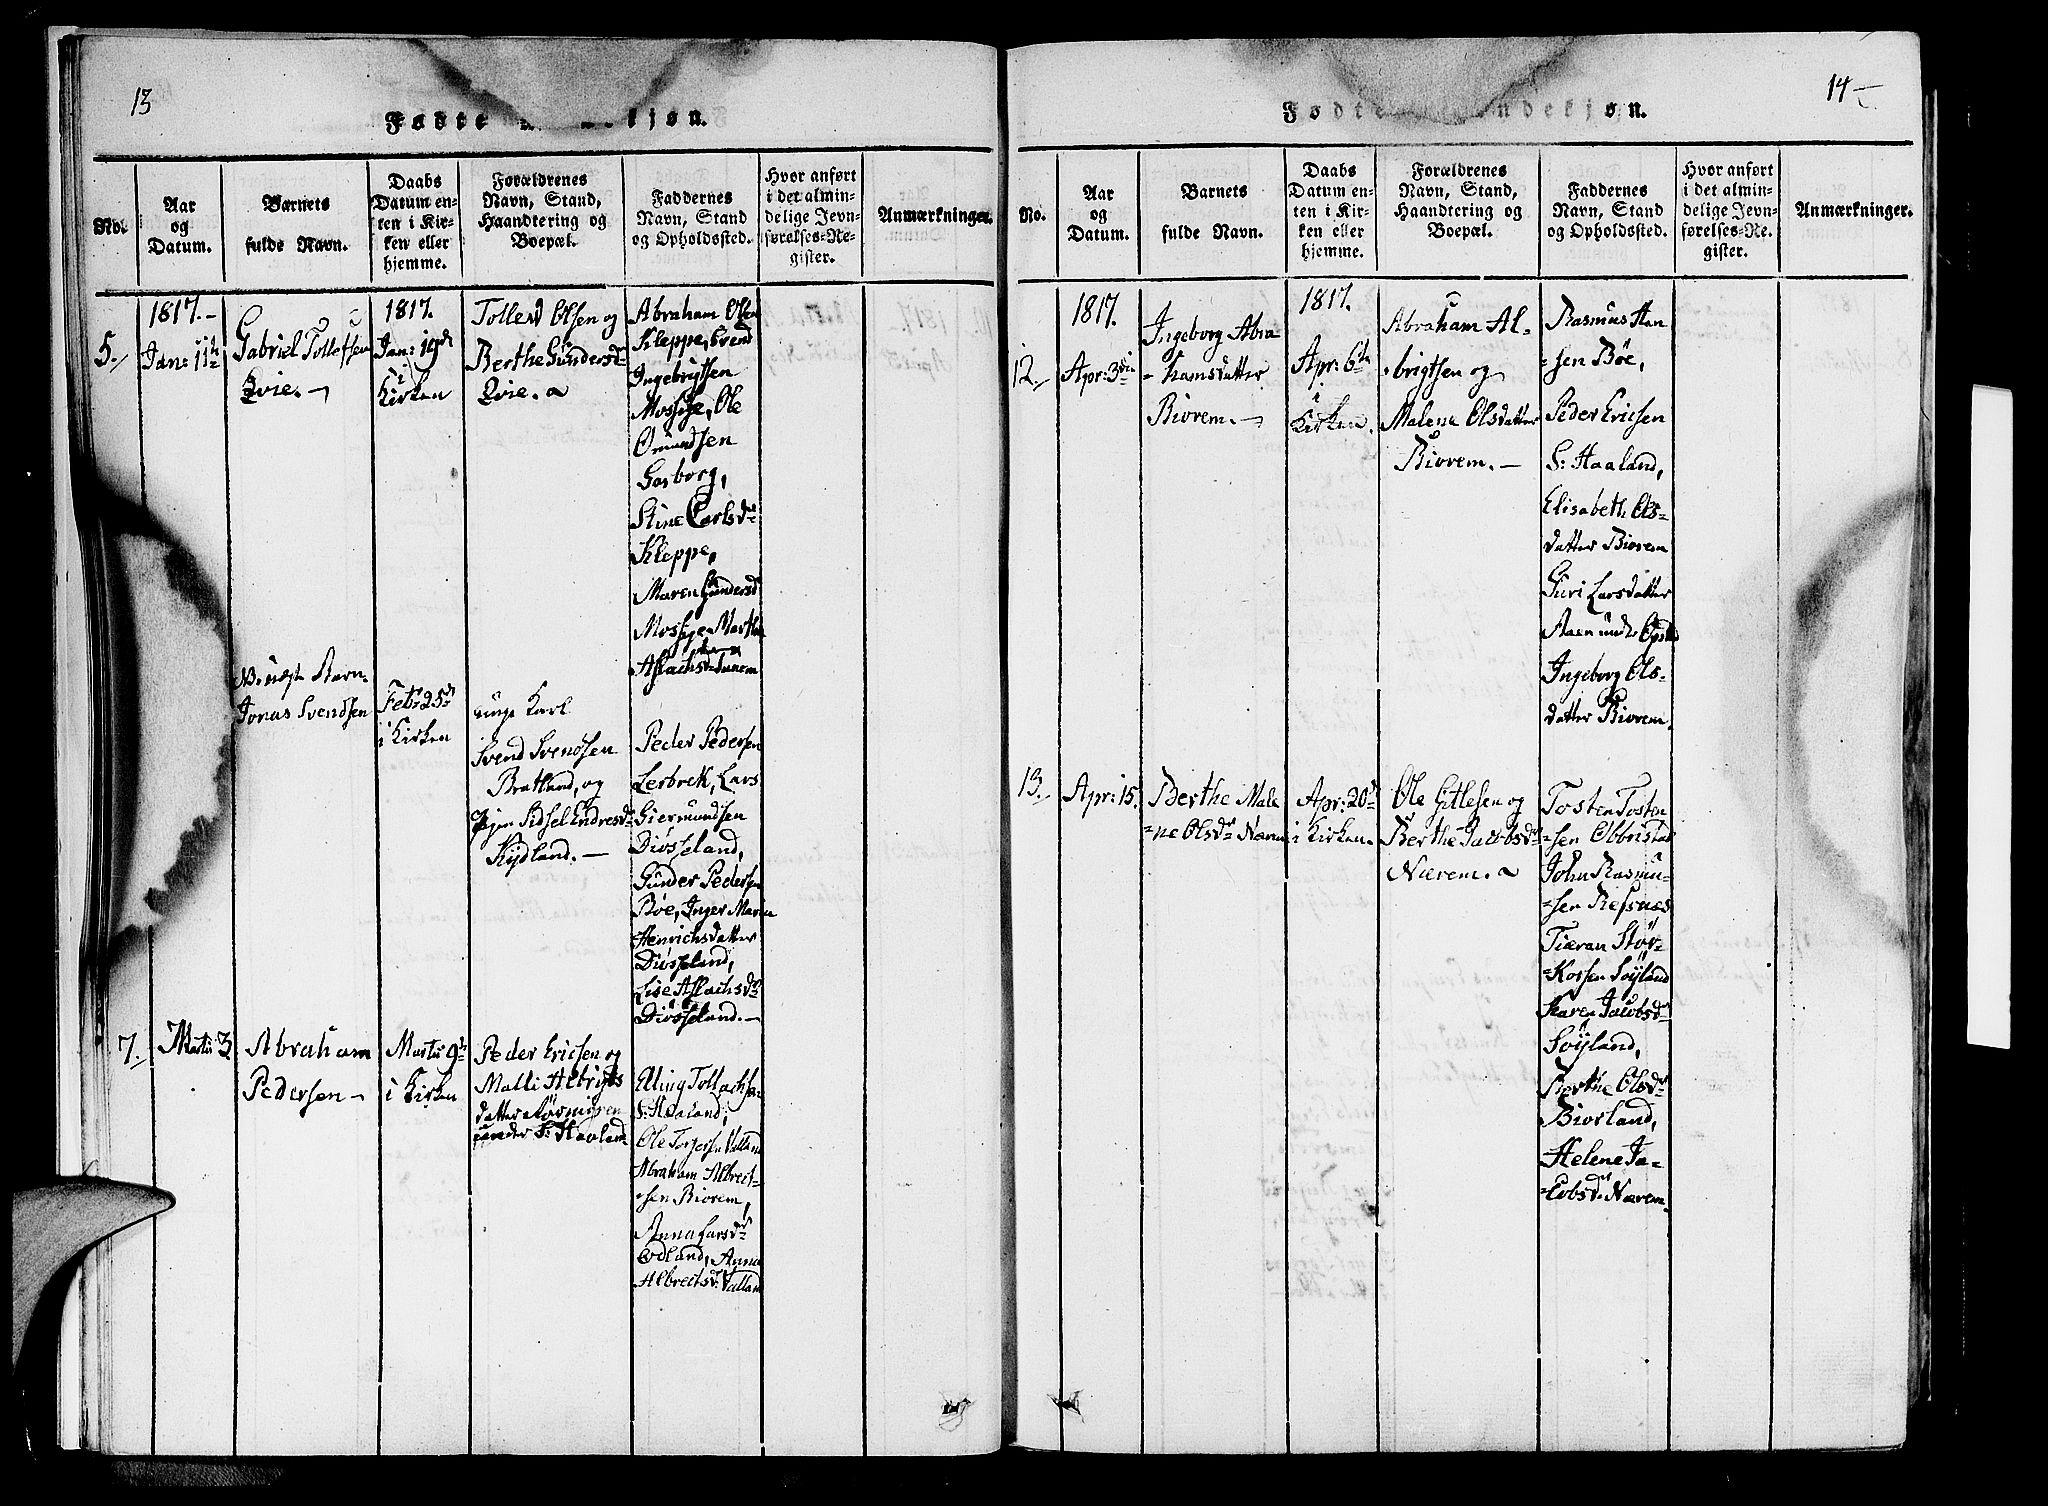 13
Fødte kjøn.
No.
Aar
og
Datum.
Barnets
fulde Navn.
Daabs
Datum en-
ten i Kir-
ken eller
hjemme.
Forældrenes
Navn, Stand,
Haandtering og
Boepæl.
Faddernes
Navn, Stand
og Opholdssted.
Hvor anført
i det almin-
delige Jevn-
førelses-Re-
gister.
Anmærkninger.
5.
1817.-
Jan: 11te
Gabriel Tollefsen
Qvie. -
1817.
Jan: 19de
i
Kirken
Tolleid Olsen og
Berthe Gundersdr
Qvie.
Abraham Olsen
Kleppe, Svend
Ingebrigtsen
Mossige, Ole
Omundsen
Gasborg,
Stine Carlsdr
Kleppe,
Maren Gundersdr
Mossige Martha
Aslachsdr
Barn
Jonas Svendsen
Feb: 25de
i Kirken
unge Karl
Svend Svendsen
Bratland, og
Pigen Sidsel Endresdr
Kydland. -
Peder Pedersen
Lerbrek, Lars
Giermundsen
Diösseland,
Gunder Pedersen
Bøe, Inger Maria
Henrichsdatter
Diösseland,
Lise Aslachsdr
Diösseland. -
7.
Martii 3
Abraham
Pedersen -
Martii 9de
i Kirken
Peder Ericsen og
Malli Albrigts
datter
under S: Haaland
Elling Tollachsen
S: Haaland,
Ole Valland
Abraham Albrect-
-sen Biorem,
Anna Larsdr
Odland, Anna
Albrectsdr Valland
14
Fødte Qvindekjøn.
No.
Aar
og
Datum.
Barnets
fulde Navn.
Daabs
Datum en-
ten i Kir-
ken eller
hjemme.
Forældrenes
Navn, Stand,
Haandtering og
Boepæl.
Faddernes
Navn, Stand
og Opholdssted.
Hvor anført
i det almin-
delige Jevn-
førelses-Re-
gister.
Anmærkninger.
12.
1817.
Apr: 3die
Ingeborg Abra
-hamsdatter
Biorem. -
1817.
Apr: 6te
i
Kirken.
Abraham Al-
-brigtsen og
Malene Olsdatter
Biorem. -
Rasmus Han
-sen Bøe,
Peder Ericsen
S: Haaland,
Elisabeth Ols-
datter Biorem
Guri Larsdatter
under
Ingeborg Ols-
datter Biorem.
13.
Apr: 15.
Berthe Male
-ne Olsdr Nærem
Apr: 20de
i Kirken.
Ole Gitlesen og
Berthe Jacobsdr
Nærem.
Tosten Tosten
-sen Obbristad
John Rasmu-
-sen Refsnæs
Tieran Stør-
-Korsen Söyland
Karen Jacobsdr
Söyland,
Berthe Olsdr
Biorland,
Helene Ja-
-cobsdr Nærem.